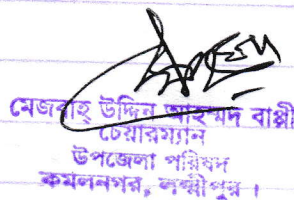 মেজবাহ্ উদ্দিন আহম্মদ বাপ্পী
চেয়ারম্যান
উপজেলা পরিষদ
কমলনগর, লক্ষ্মীপুর ।